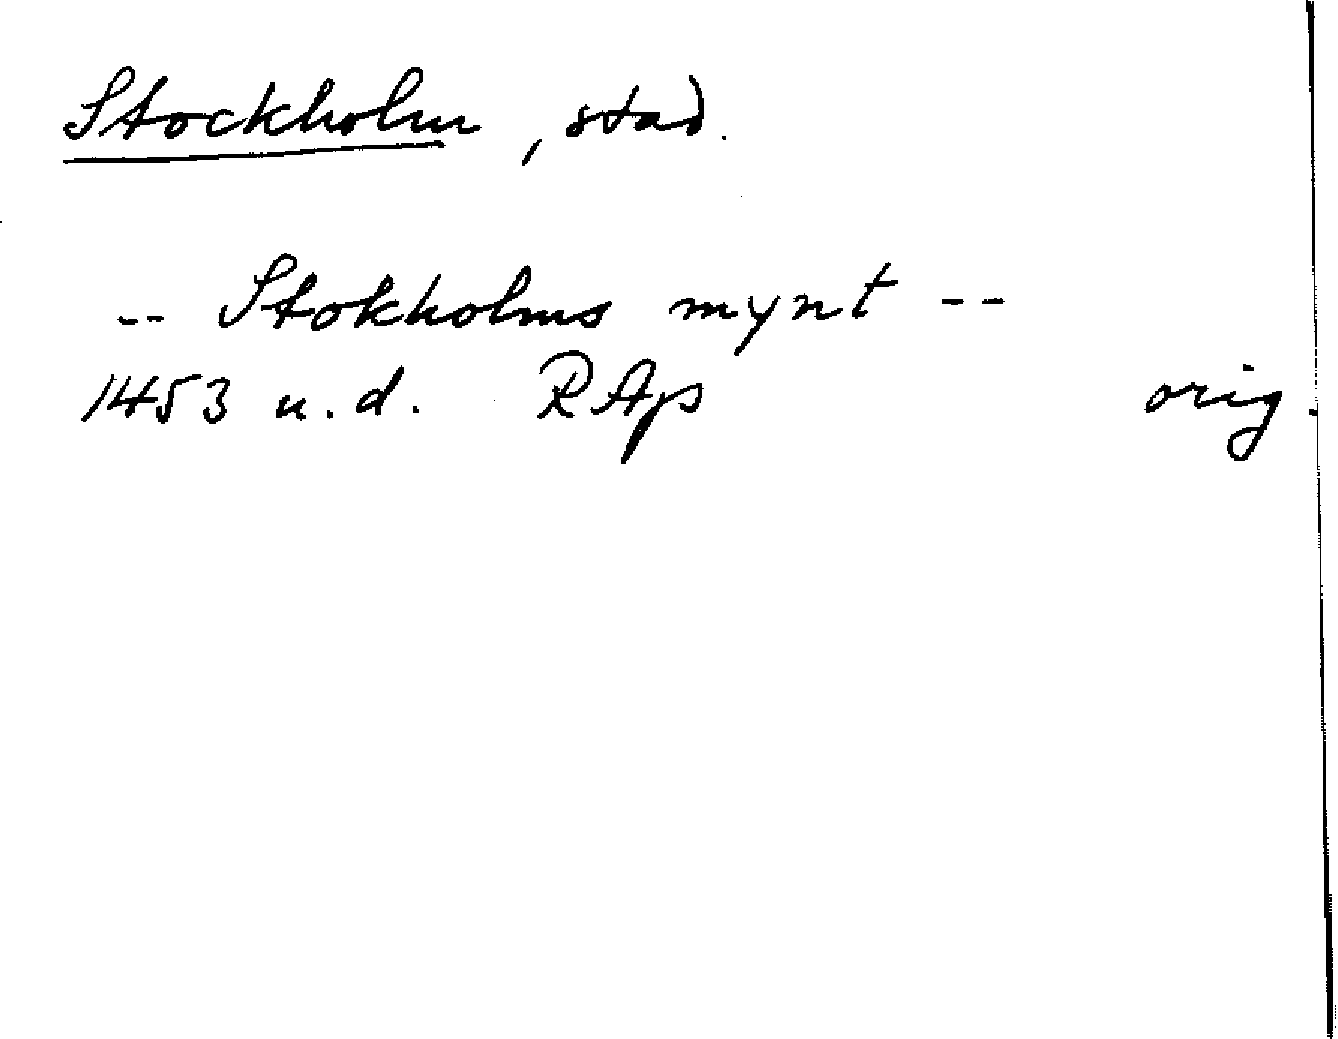 Stockholm, stad.
-- Stokholms mynt --
1453 u.d. RAp orig.